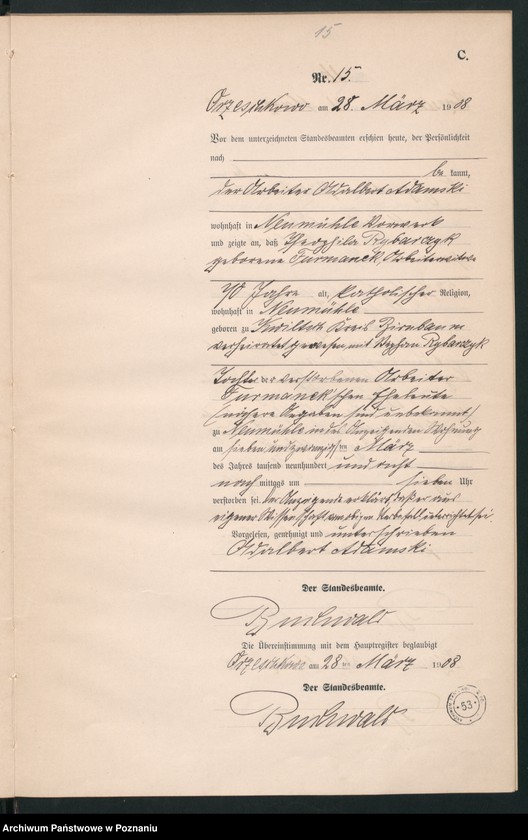 15
C.
Nr. 15.
Orzeschkowo am 28. März 1908
Vor dem unterzeichneten Standesbeamten erschien heute, der Persönlichkeit
nach
be kannt,
der Arbeiter Adalbert Adamski
wohnhaft in Neumühle Vorwerk
und zeigte an, daß Theophila Rybarczyk
geborene Furmanek, Arbeiterwitwe
70 Jahre alt, katholischer Religion,
wohnhaft in Neumühle
geboren zu Kwiltsch Kreis Birnbaum
verheiratet gewesen mit Stephan Rybarczyk
Tochter der verstorbenen Arbeiter
Furmanek'schen Eheleute
(nähere Angaben sind unbekannt)
zu Neumühle in des Anzeigenden Wohnung
am sieben und zwanzigsten März
des Jahres tausend neunhundert und acht
nach mittags um sieben Uhr
verstorben sei. Der Anzeigende erklärt, daß er aus
eigener Wissenschaft von obigem Sterbefall unterrichtet sei.
Vorgelesen, genehmigt und unterschrieben
Adalbert Adamski
Der Standesbeamte.
Buchwald
Die Übereinstimmung mit dem Hauptregister beglaubigt
Orzeschkowo am 28 ten März 1908.
Der Standesbeamte.
Buchwald
53
Archiwum Państwowe w Poznaniu